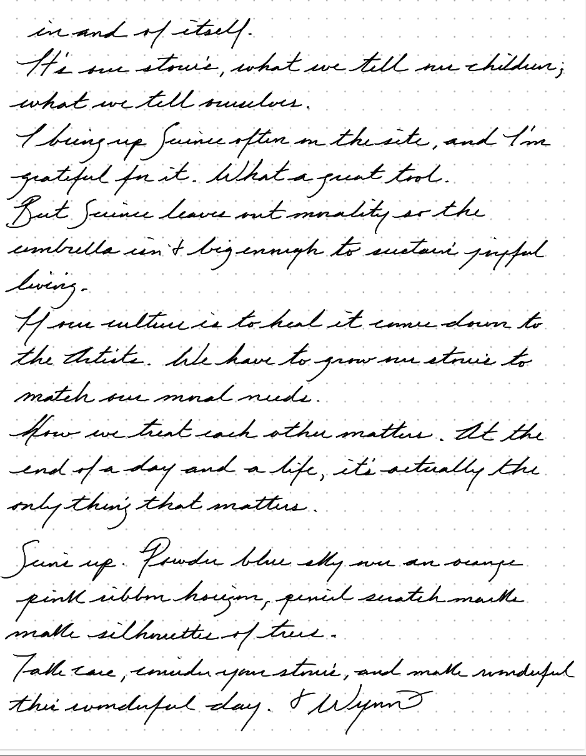 in and of itself.
It's our stories, what we tell our children;
what we tell ourselves.
I bring up Science often on the site, and I'm
grateful for it. What a great tool.
But Science leaves out morality so the
umbrella isn't big enough to sustain joyful
living.
If our culture is to heal it comes down to
the Artists. We have to grow our stories to
match our moral needs.
How we treat each other matters. At the
end of a day and a life, it's actually the
only thing that matters.
Sun's up. Powder blue sky over an orange
pink ribbon horizon, pencil scratch marks
make silhouettes of trees.
Take care, consider your stories, and make wonderful
this wonderful day. & Wynn